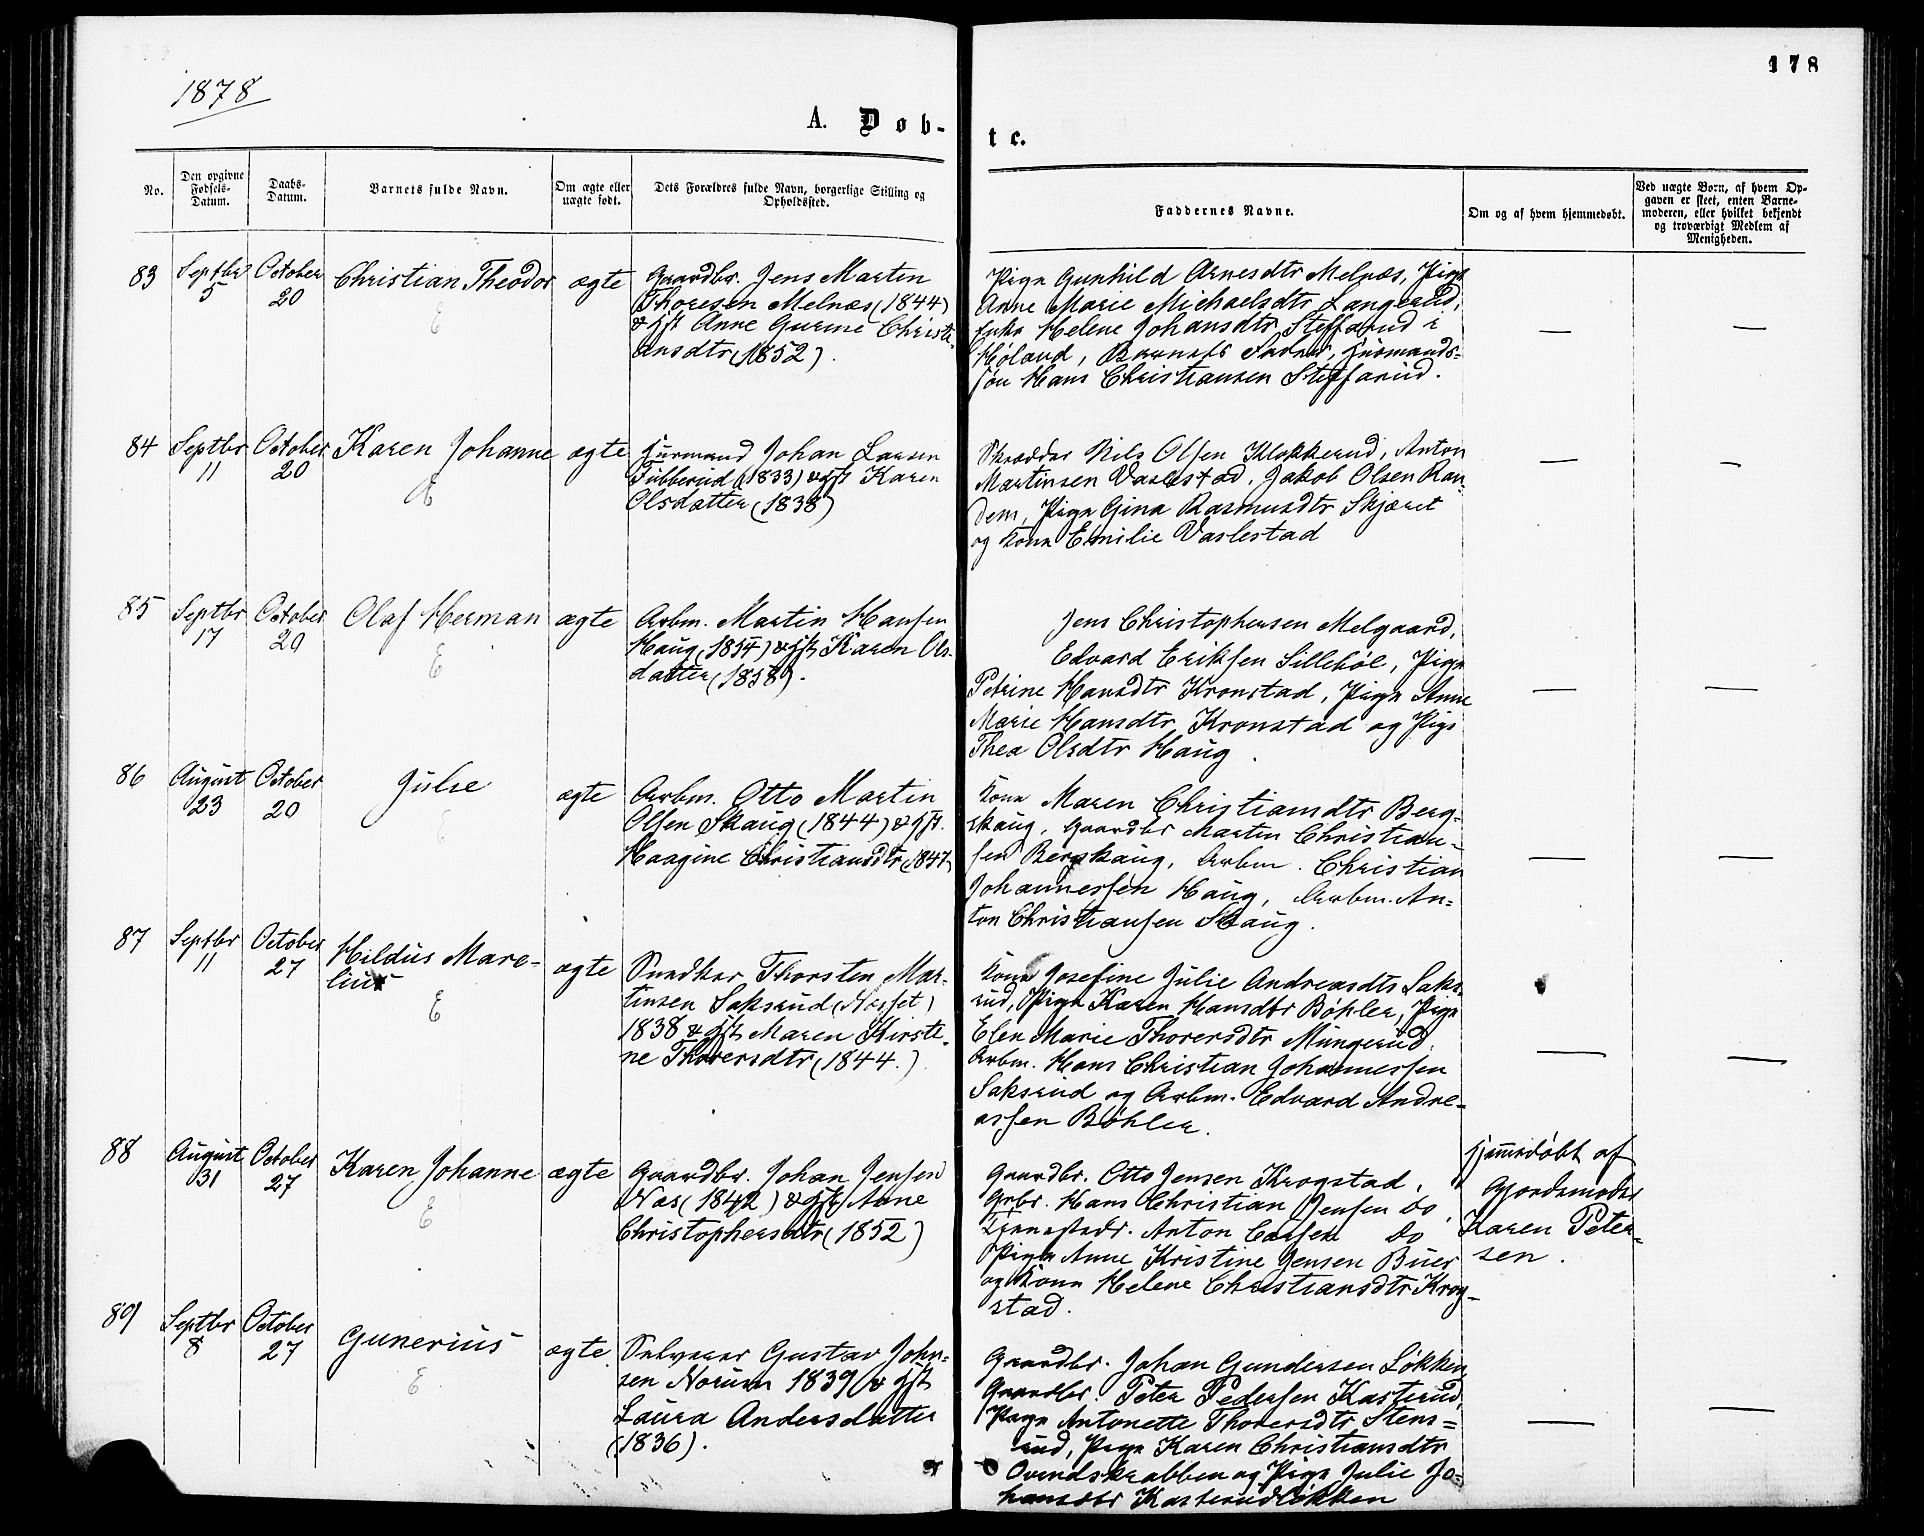 1878
178
A. Døb-
te.
No.
Den opgivne Fødsels-Datum.
Daabs-Datum.
Barnets fulde Navn.
Om ægte eller uægte født.
Dets Forældres fulde Navn, borgerlige Stilling og Opholdssted.
Faddernes Navne.
Om og af hvem hjemmedøbt.
Ved uægte Børn, af hvem Op-
gaven er skeet, enten Barne-
moderen, eller hvilket bekjendt
og troværdigt Medlem af
Menigheden.
83
Septbr
5
October
20
Christian Theodor
E
ægte
Gaardbr. Jens Martin
Thoresen Melnæs (1844)
& Hst Anne Gurine Christi-
ansdtr (1852).
Pige Gunhild Arnesdtr Melnæs, Pige
Anne Marie Michaelsdtr Langerud,
Enke Helene Johansdtr Steffarud i
Høland, Barnets Fader, Huusmands-
søn Hans Christiansen Steffarud.
—
—
84
Septbr
11
October
20
Karen Johanne
E
ægte
Huusmand Johan Larsen
Tubberud (1833) & Hst Karen
Olsdatter (1838)
Skrædder Nils Olsen Klokkerud, Anton
Martinsen Vaslestad, Jakob Olsen Ran-
dem, Pige Gina Rasmusdtr Skjæret
og Kone Emilie Vaslestad
—
—
85
Septbr
17
October
20
Olaf Herman
E
ægte
Arbm. Martin Hansen
Haug (1854) & Hst Karen Ols-
datter (1858).
Jens Christophersen Melgaard,
Edvard Eriksen Sillebøl, Pige
Petrine Hansdtr Kronstad, Pige Anne
Marie Hansdtr Kronstad og Pige
Thea Olsdtr Haug.
—
—
86
August
23
October
20
Julie
E
ægte
Arbm. Otto Martin
Olsen Skaug (1844) & Hst.
Haagine Christiansdtr (1847)
Kone Maren Christiansdtr Berg-
skaug, Gaardbr Martin Christian-
sen Bergskaug, Arbm. Christian
Johannessen Haug, Arbm. An-
ton Christiansen Skaug.
—
—
87
Septbr
11
October
27
Hildus Mare-
lius
E
ægte
Snedker Thorsten Mar-
tinsen Saksrud (Næsset)
1838 & Hst Maren Kirsti-
ne Thorersdtr (1844.)
Kone Josefine Julie Andreasdtr Saks-
rud, Pige Karen Hansdtr Bøhler, Pige
Elen Marie Thorersdtr Mungerud,
Arbm. Hans Christian Johannessen
Saksrud og Arbm. Edvard Andre-
assen Bøhler.
—
—
88
August
31
October
27
Karen Johanne
E
ægte
Gaardbr. Johan Jensen
Næs (1842) & Hst Anne
Christophersdtr (1852)
Gaardbr. Otto Jensen Krogstad,
Grbr. Hans Christian Jensen Do,
Anton Do
Pige Anne Kristine Jensen Buer
og Kone Helene Christiansdtr Krog-
stad.
Hjemmedøbt af
Gjordemoder
Karen Peter-
sen.
89
Septbr
8
October
27
Gunerius
E
ægte
Selveier Gustav John-
sen Norum 1839 & Hst
Laura Andersdatter
(1836).
Gaardbr. Johan Gundersen Løkken,
Gaardbr. Peter Pedersen Kasterud,
Pige Antonette Thorersdtr Stens-
rud, Pige Karen Christiansdtr
Ovindskrabben og Pige Julie Jo-
hansdtr Kasterudløkken
—
—